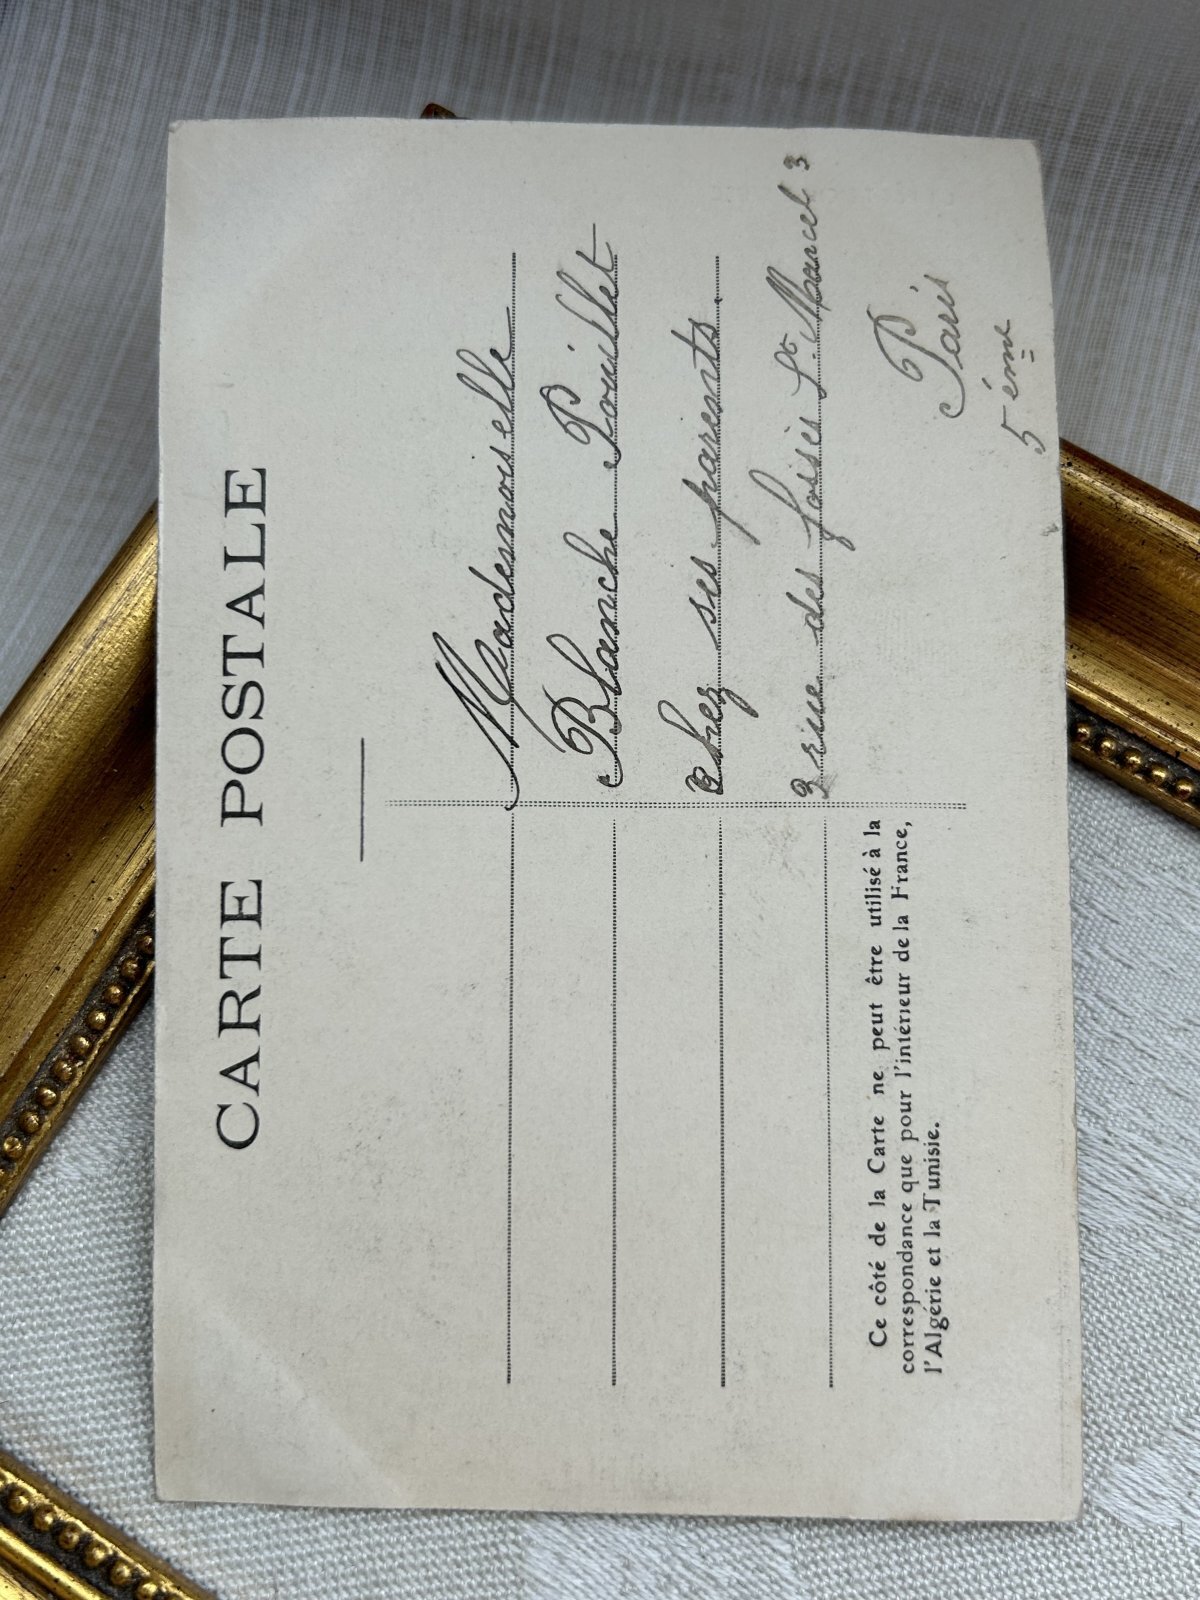 CARTE POSTALE
Mademoiselle
Blanche Pouillet
chez ses parents.
3 rue des fossés St. Marcel 3
Paris
5 ème
Ce côté de la Carte ne peut être utilisé à la
correspondance que pour l'intérieur de la France,
l'Algérie et la Tunisie.